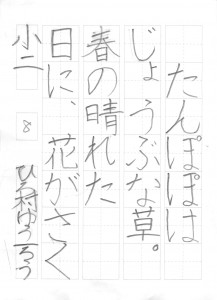 たんぽぽは
じょうぶな草。
春の晴れた
日に、花がさく
小二 8